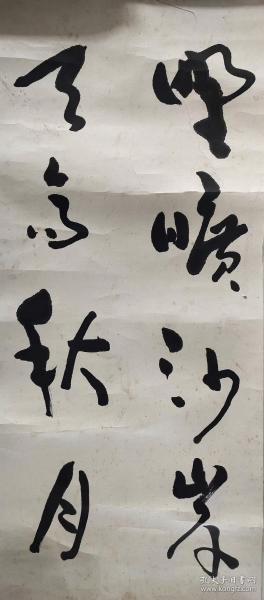 野曠沙岸
天高秋月
孔夫子旧书网
www.kongfz.com